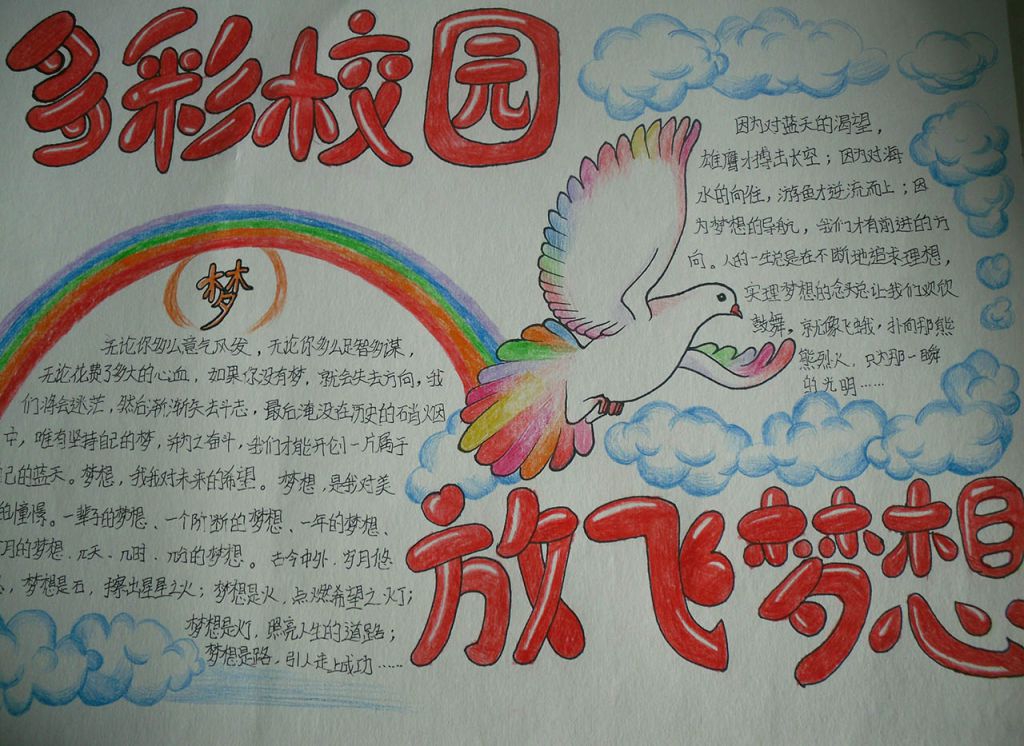 多彩校园
因为对蓝天的渴望，
雄鹰才搏击长空；因为对海
水的向往，游鱼才逆流而上；因
为梦想的导航，我们才有前进的方
向。人的一生总是在不断地追求理想，
实理梦想的念头总让我们欢欣
鼓舞。就像飞蛾，扑向那熊
熊烈火，只为那一瞬
的光明……
梦
无论你多么意气风发，无论你多么足智多谋，
无论花费了多大的心血，如果你没有梦，就会失去方向，我
们将会迷茫，然后渐渐失去斗志，最后淹没在历史的硝烟
中，唯有坚持自己的梦，并为之奋斗，我们才能开创一片属于
己的蓝天。梦想，我我对未来的希望。梦想，是我对美
的憧憬。一辈子的梦想、一个阶断的梦想、一年的梦想、
月的梦想、几天、几时、几分的梦想。古今中外，岁月悠
梦想是石，擦出星星之火；梦想是火，点燃希望之灯；
梦想是灯，照亮人生的道路；
梦想是路，引人走上成功……
放飞梦想